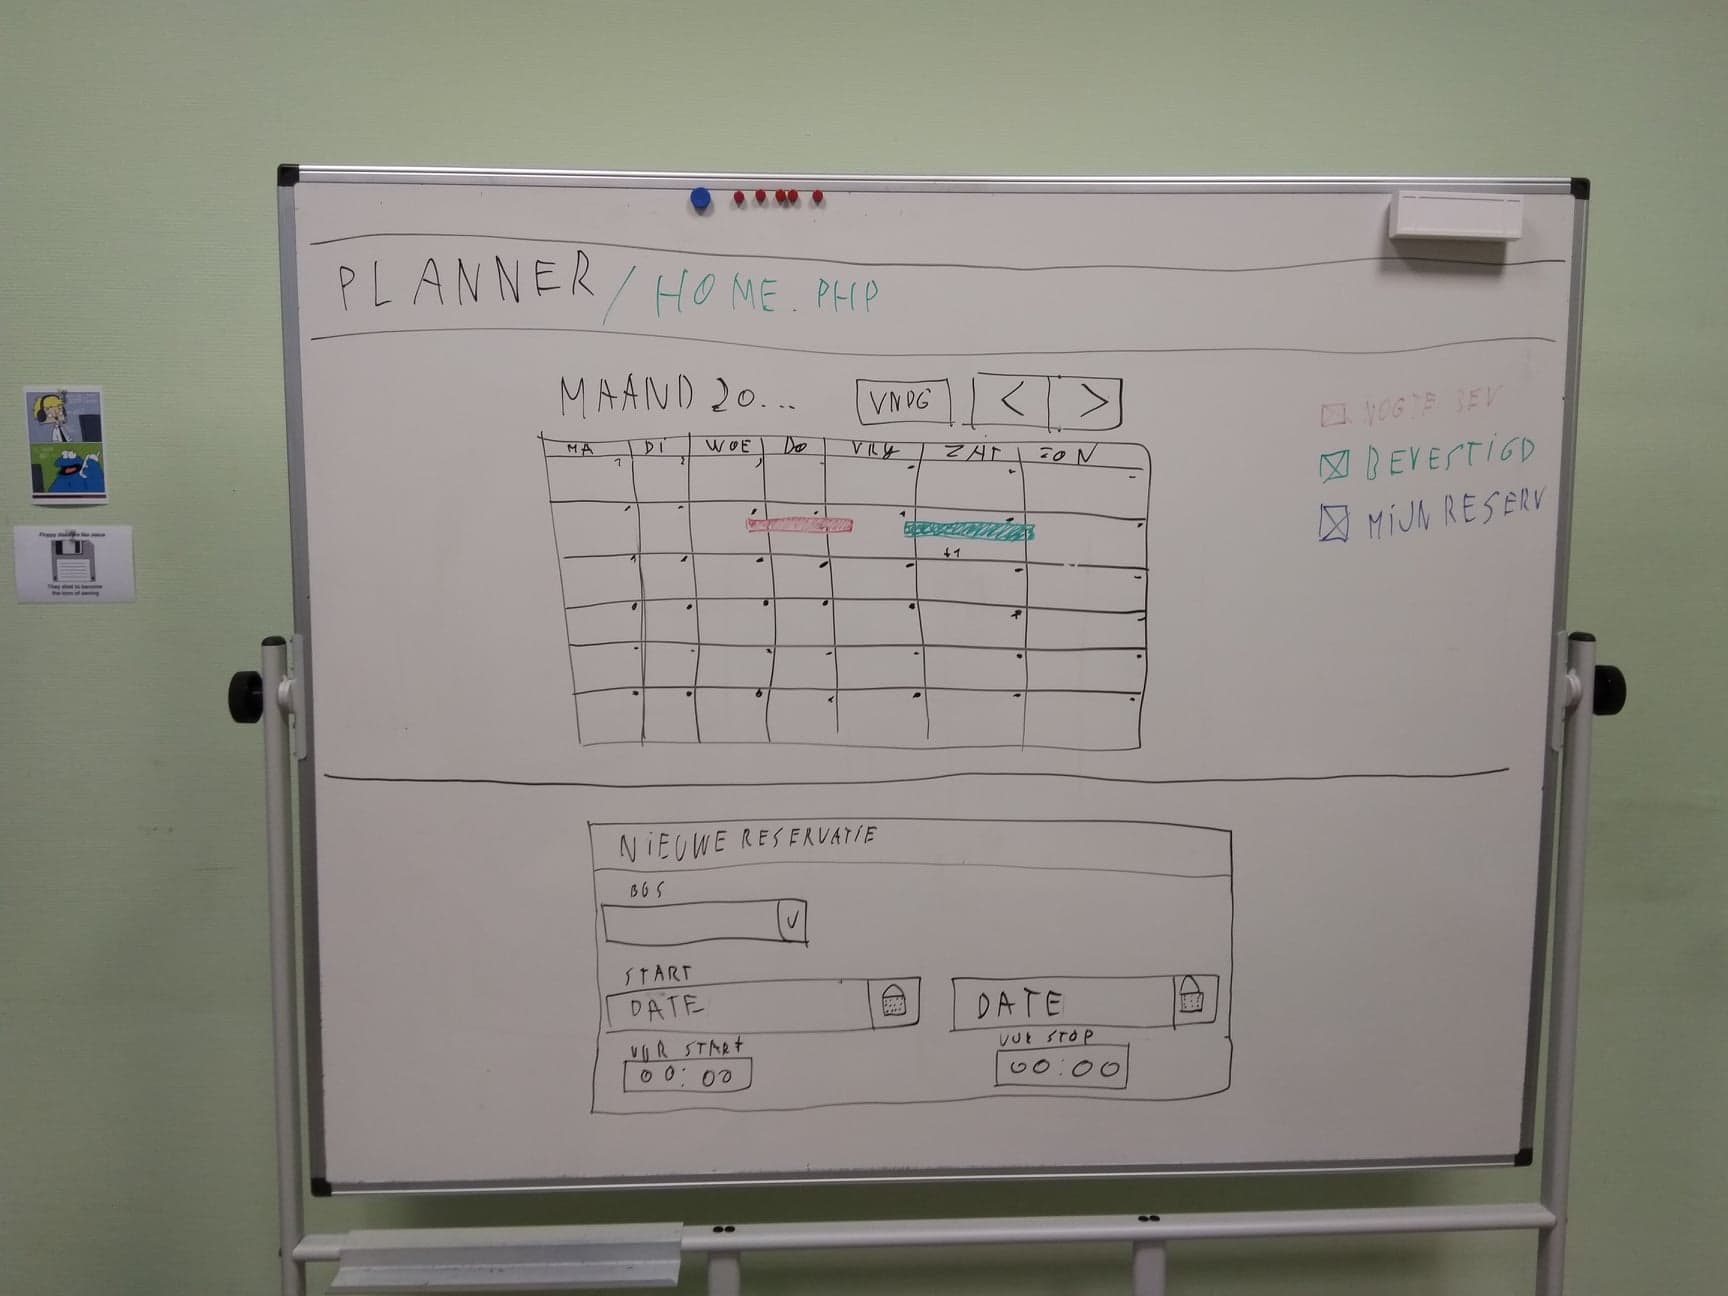 PLANNER / HOME.PHP
MAAND 20...
VNDG
< >
MA DI WOE DO VRY ZAT ZON
NOG TE BEV
BEVESTIGD
MIJN RESERV
+1
NIEUWE RESERVATIE
BGS
V
START
DATE
DATE
UUR START
UUR STOP
00:00
00:00
They died to become
the icon of saving